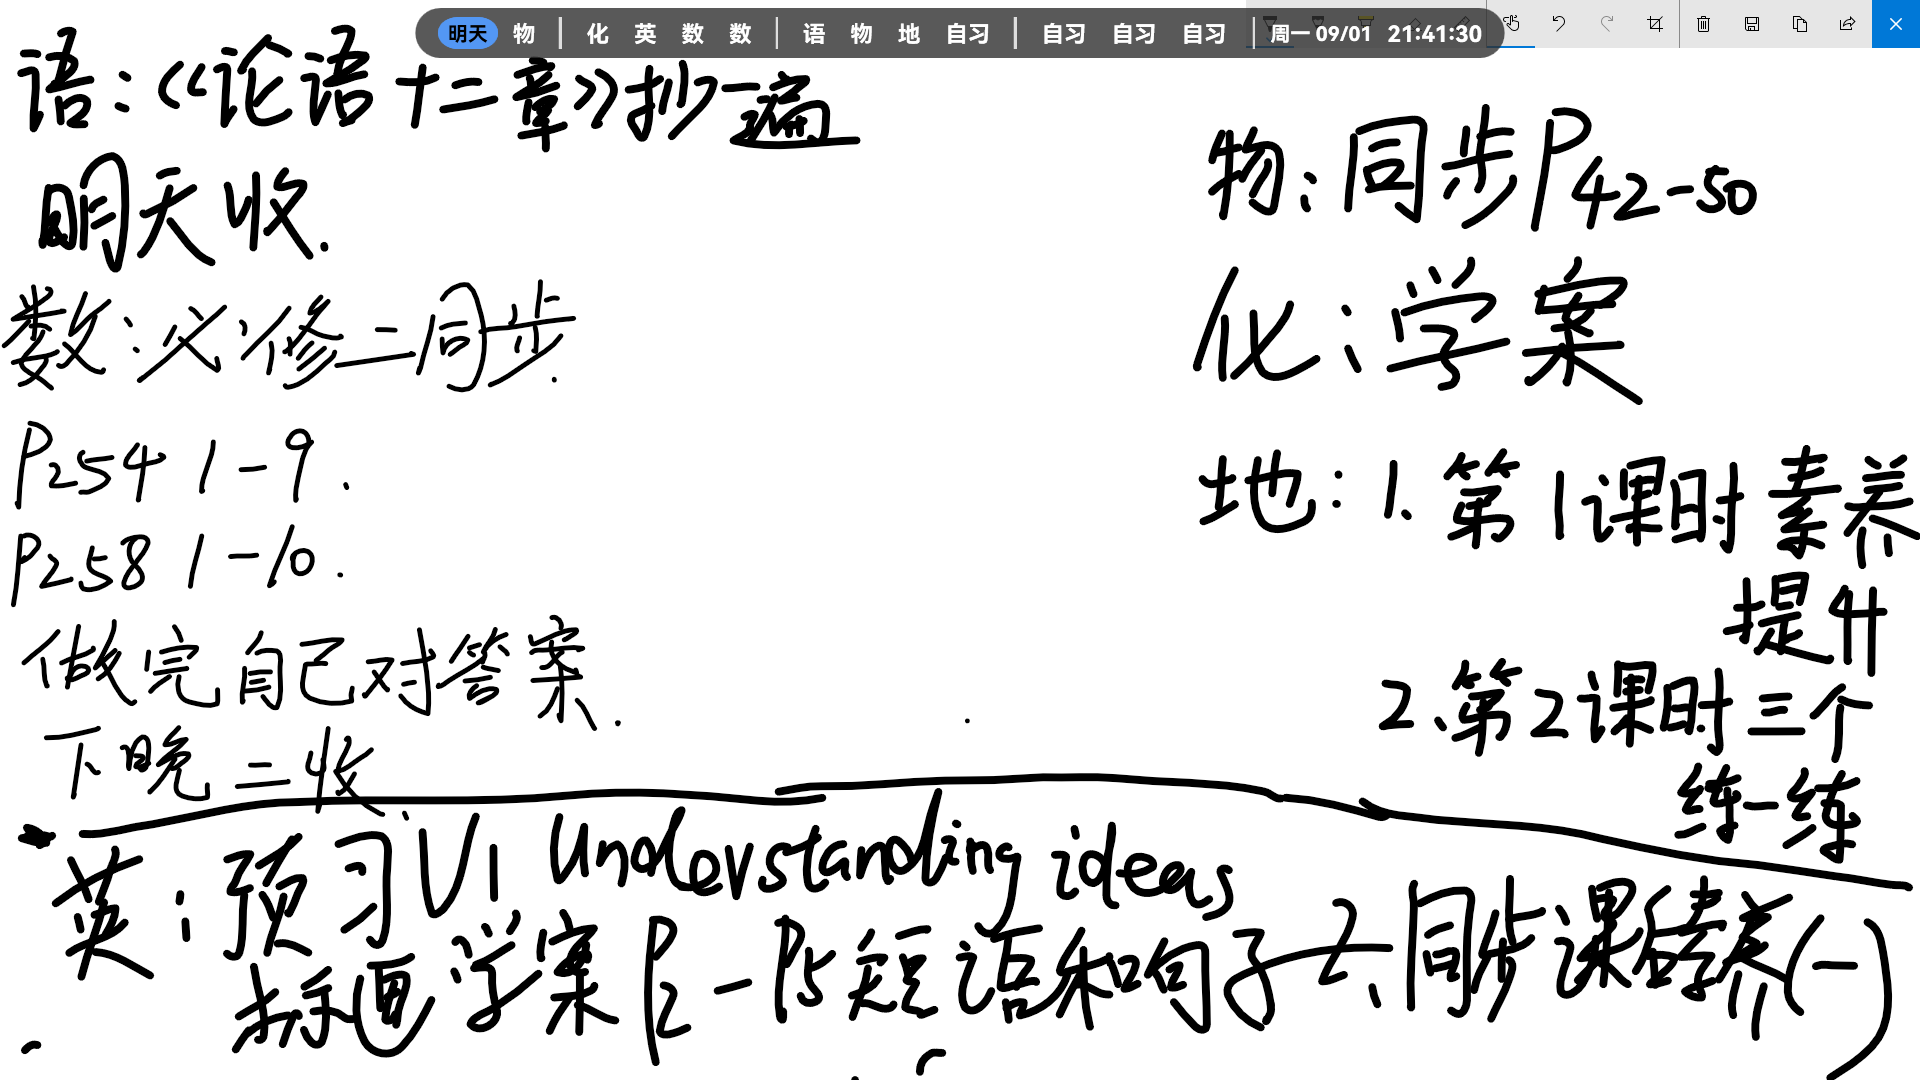 明天 物 | 化 英 数 数 | 语 物 地 自习 | 自习 自习 自习 | 周一 09/01 21:41:30
语:《论语十二章》抄一遍
明天收.
数:必修二同步.
P254 1-9.
P258 1-10.
做完自己对答案.
下晚二收.
物:同步P42-50
化:学案
地:1.第1课时素养
提升
2.第2课时三个
练一练
英:预习U1 Understanding ideas
标画学案P2-P5短语和句子 2.同步课后素养(一)